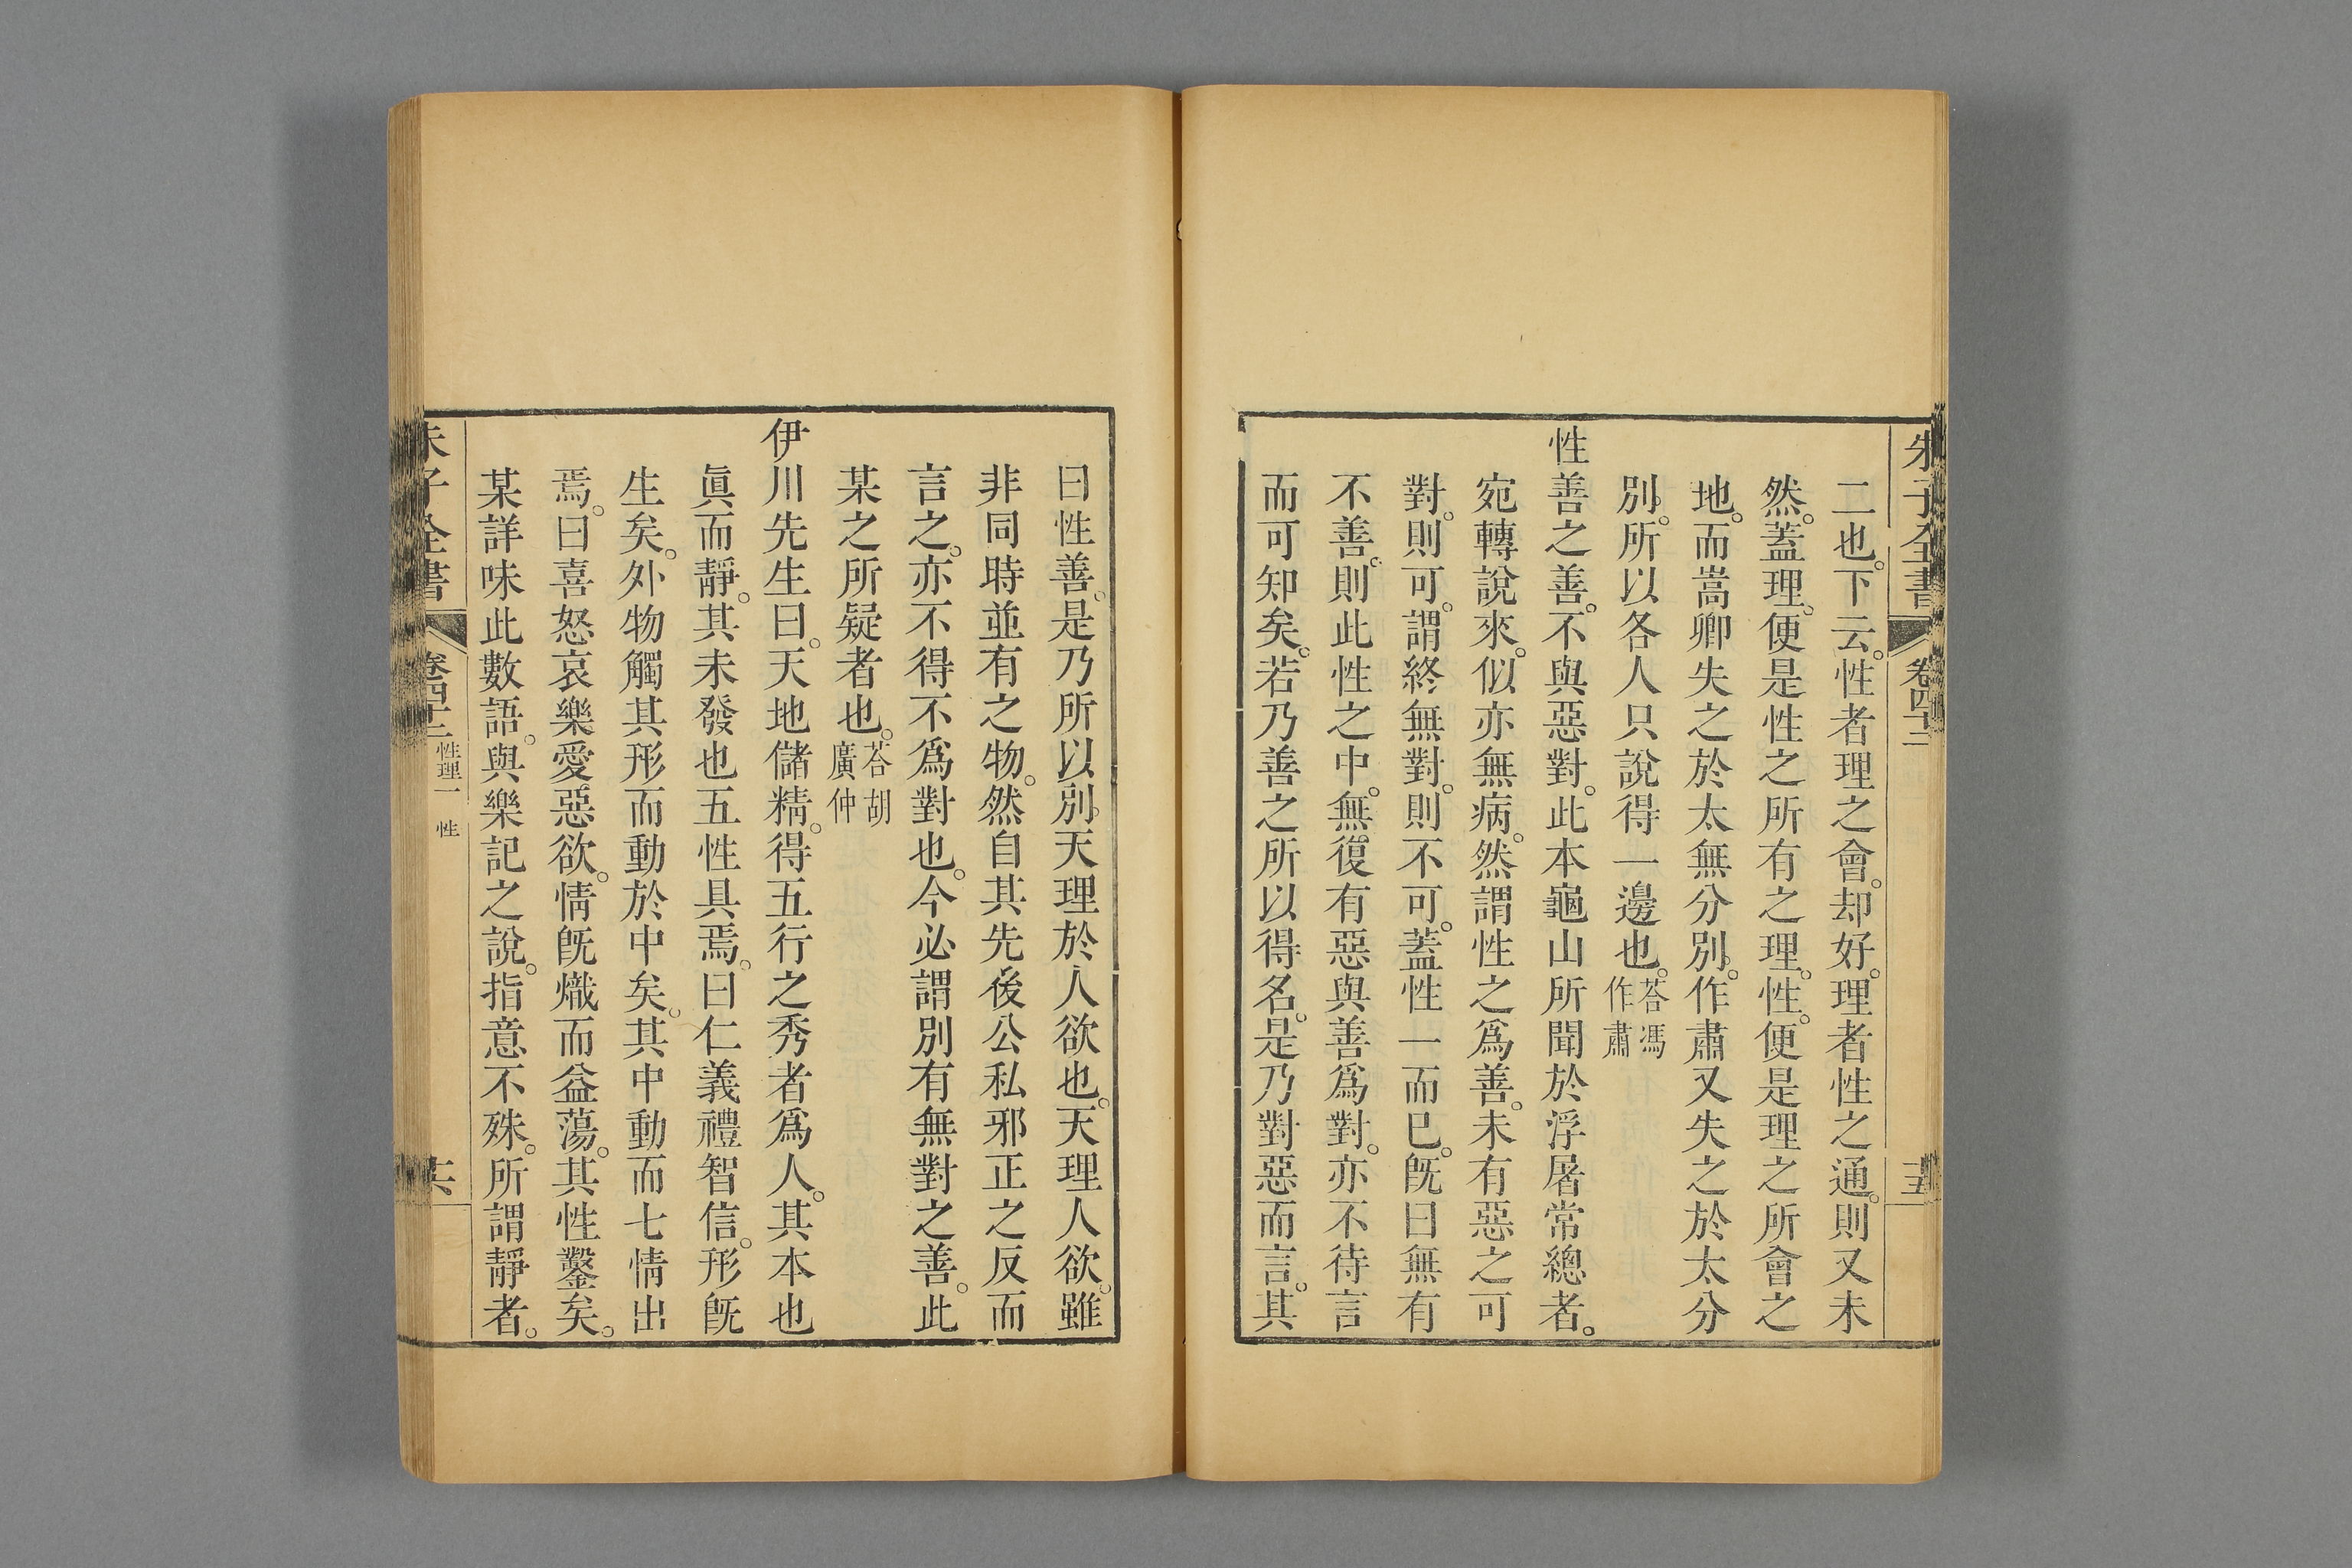 朱子全書 卷四十二 十五
二也。下云。性者理之會。却好。理者性之通。則又未
然。蓋理。便是性之所有之理。性。便是理之所會之
地。而嵩卿失之於太無分別。作肅又失之於太分
別。所以各人只說得一邊也。荅馮作肅
性善之善。不與惡對。此本龜山所聞於浮屠常總者。
宛轉說來。似亦無病。然謂性之爲善。未有惡之可
對。則可。謂終無對。則不可。蓋性一而已。旣曰無有
不善。則此性之中。無復有惡與善爲對。亦不待言
而可知矣。若乃善之所以得名。是乃對惡而言。其
曰性善。是乃所以別天理於人欲也。天理人欲。雖
非同時並有之物。然自其先後公私邪正之反而
言之。亦不得不爲對也。今必謂別有無對之善。此
某之所疑者也。荅胡廣仲
伊川先生曰。天地儲精。得五行之秀者爲人。其本也
眞而靜。其未發也五性具焉。曰仁義禮智信。形旣
生矣。外物觸其形而動於中矣。其中動而七情出
焉。曰喜怒哀樂愛惡欲。情旣熾而益蕩。其性鑿矣。
某詳味此數語。與樂記之說。指意不殊。所謂靜者。
朱子全書 卷四十二 性理一 性 十六